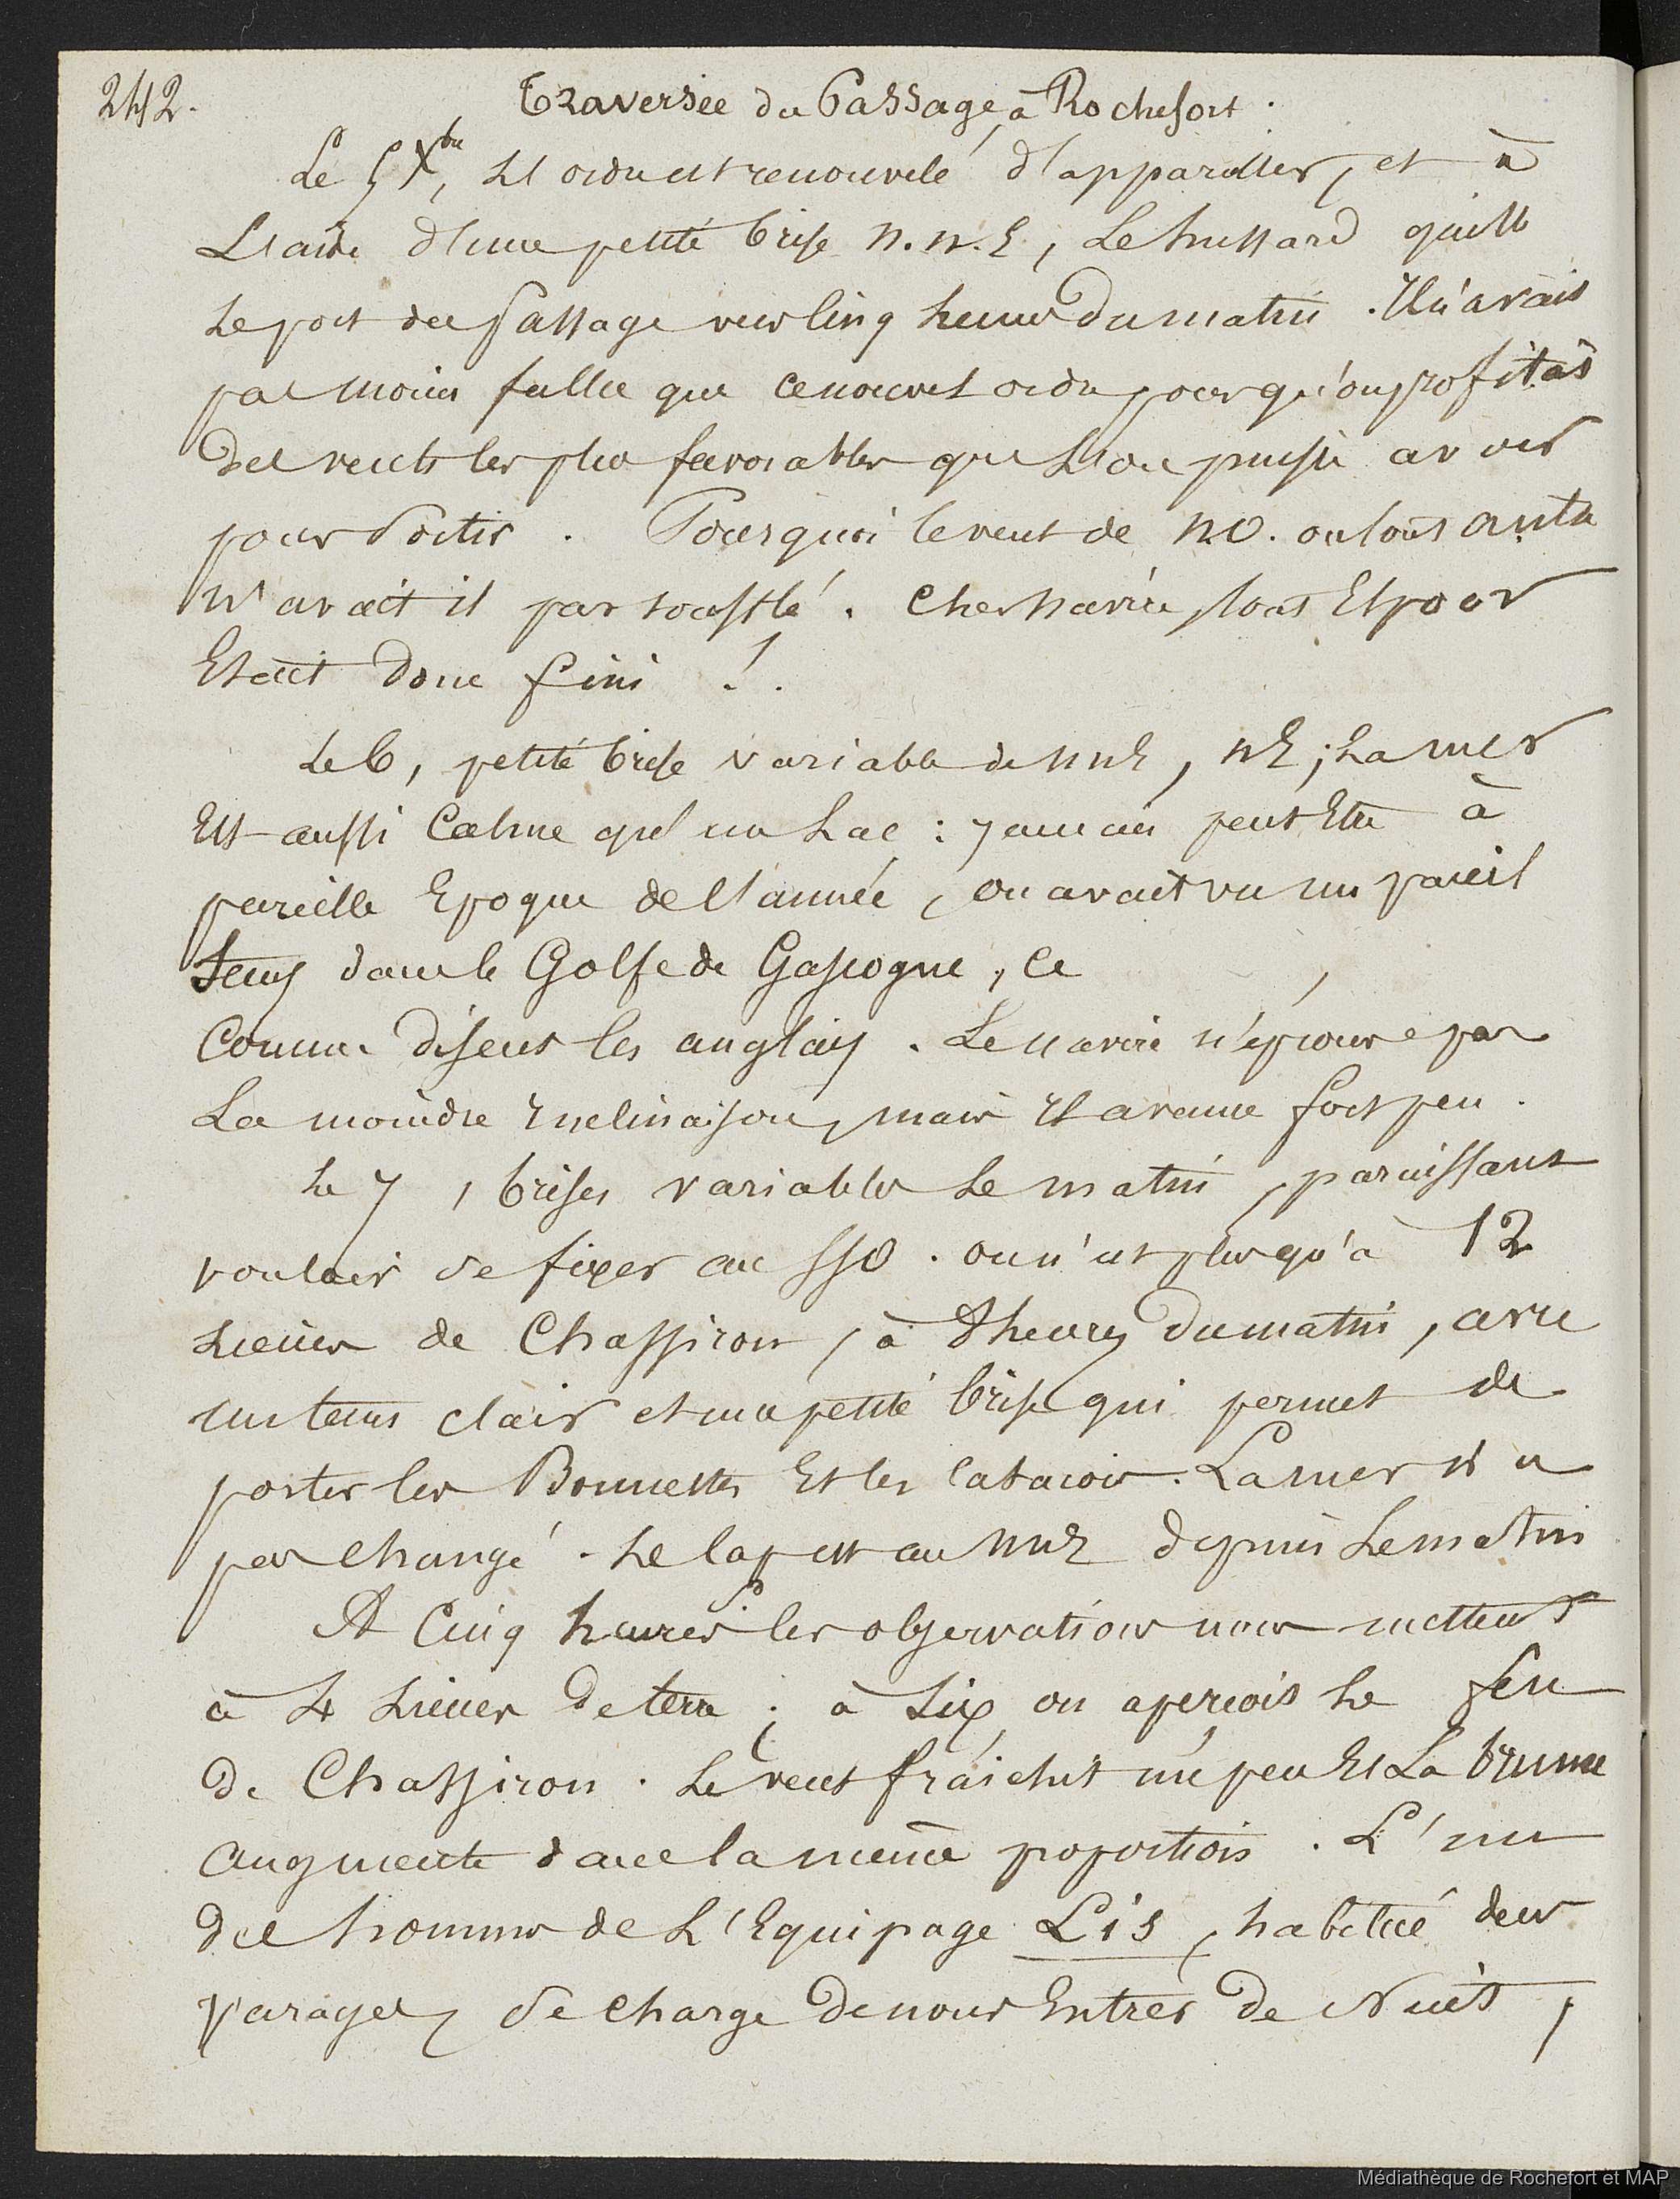 242.
Traversée du Passage à Rochefort.
Le 5 Xbre, L'ordre est renouvelé d'appareiller, et à
L'aide d'une petite brise N.N.E, Le hussard quitte
Le port du Passage vers cinq heures du matin. Il n'avait
pas moins fallu que ce nouvel ordre pour qu'on profitât
des vents les plus favorables que L'on puisse avoir
pour sortir. Pourquoi le vent de NO. ou tout autre
N'avait il pas soufflé. Cher navire, tout Espoir
Etait donc fini !.
Le 6, petite brise variable de NNE, NE; La mer
Est aussi Calme qu'un Lac : jamais peut Etre à
pareille Epoque de l'année, on avait vu un pareil
tems dans le Golfe de Gascogne, Ce
Comme disent les anglais. Le navire n'éprouve pas
La moindre Inclinaison, mais Il avance fort peu.
Le 7, brises variables Le matin, paraissant
vouloir se fixer au SSO. on n'est plus qu'à 12
Lieues de Chassiron, à 8 heures du matin, avec
un tems clair et une petite brise qui permet de
porter les Bonnettes Et les Catacois. La mer n'a
pas changé. Le Cap est au NNE depuis Le matin
A Cinq heures les observations nous mettent
à 4 Lieues de terre; à Six on aperçoit Le feu
de Chassiron. Le vent fraichit un peu Et La brume
augmente dans la même proportion. L'un
des hommes de L'Equipage Lis, habitué des
parages, se charge de nous Entrer de Nuit,
Médiathèque de Rochefort et MAP